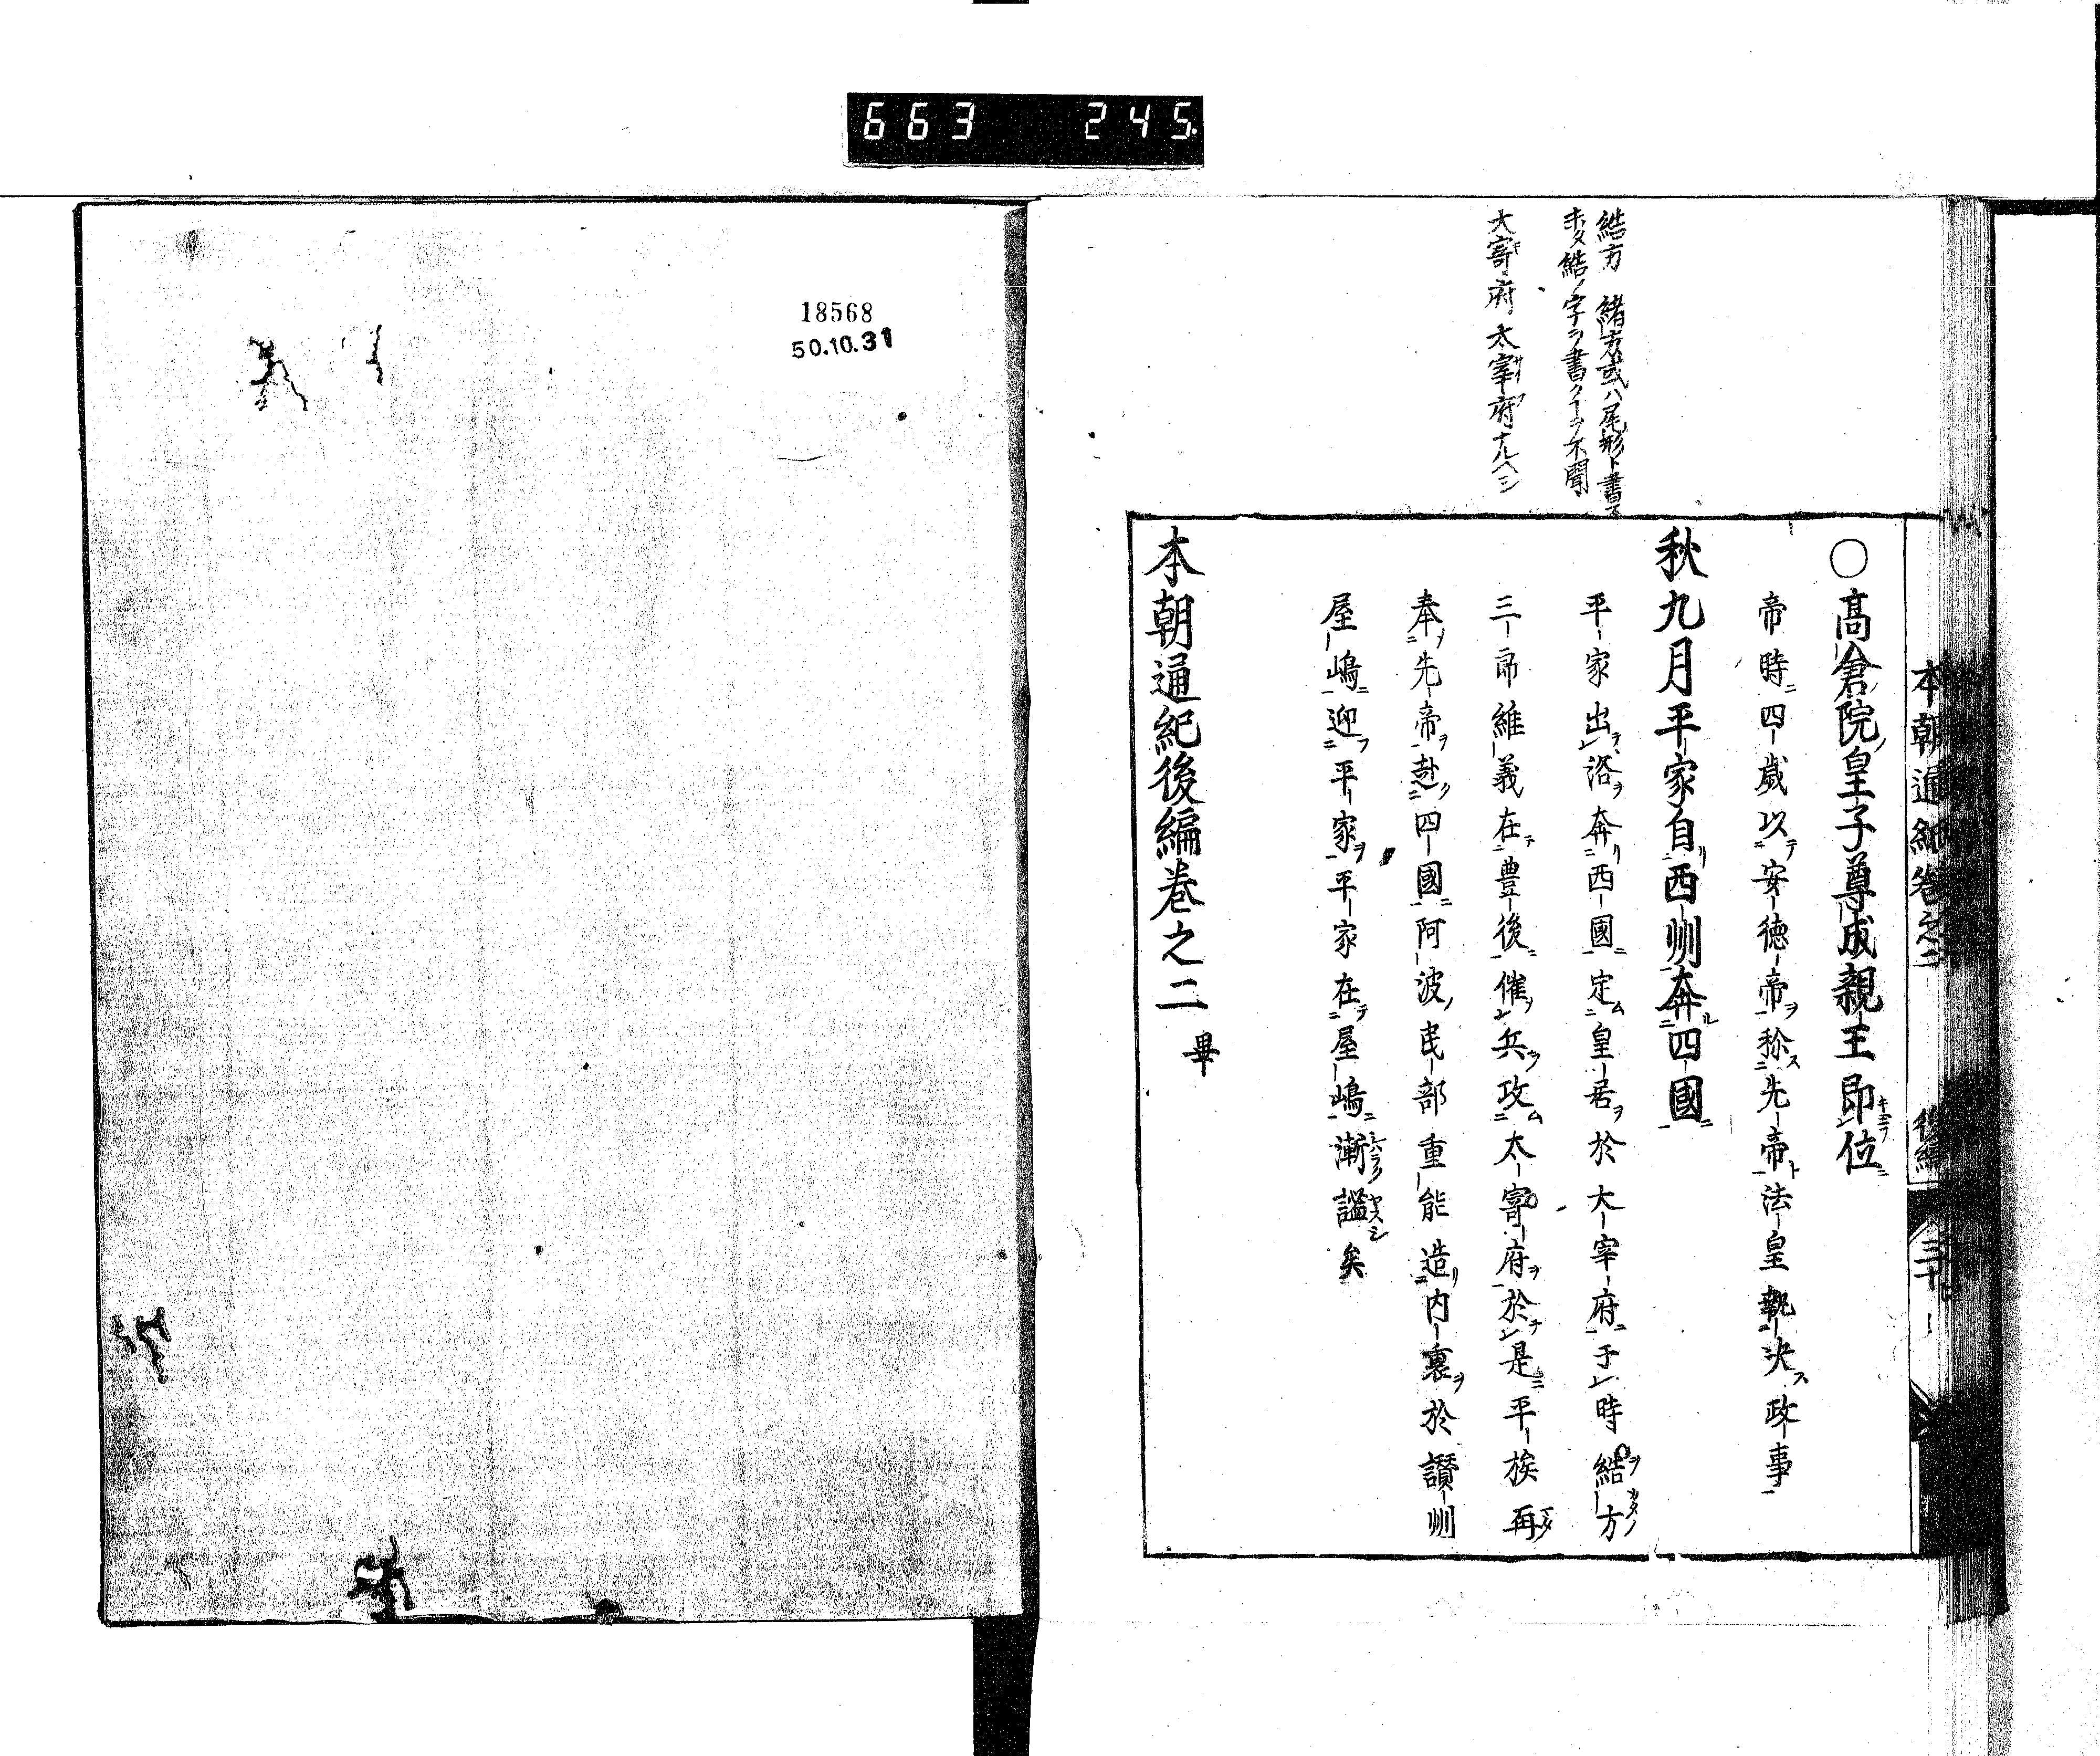 663 245
結方 緒方或ハ尾形ト書ス
未タ結ノ字ヲ書クヿヲ不聞
大寄府 太宰府ナルヘシ
本朝通紀卷之二 後編 三十
〇髙倉院皇子尊成親王即位
帝時四歳以安徳帝称先帝法皇執决政事
秋九月平家自西州奔四國
平家出洛奔西國定皇居於大宰府于時結方
三郎維義在豊後催兵攻太寄府於是平族再
奉先帝赴四國阿波民部重能造内裏於讃州
屋嶋迎平家平家在屋嶋漸謐矣
本朝通紀後編巻之二 畢
18568
50.10.31